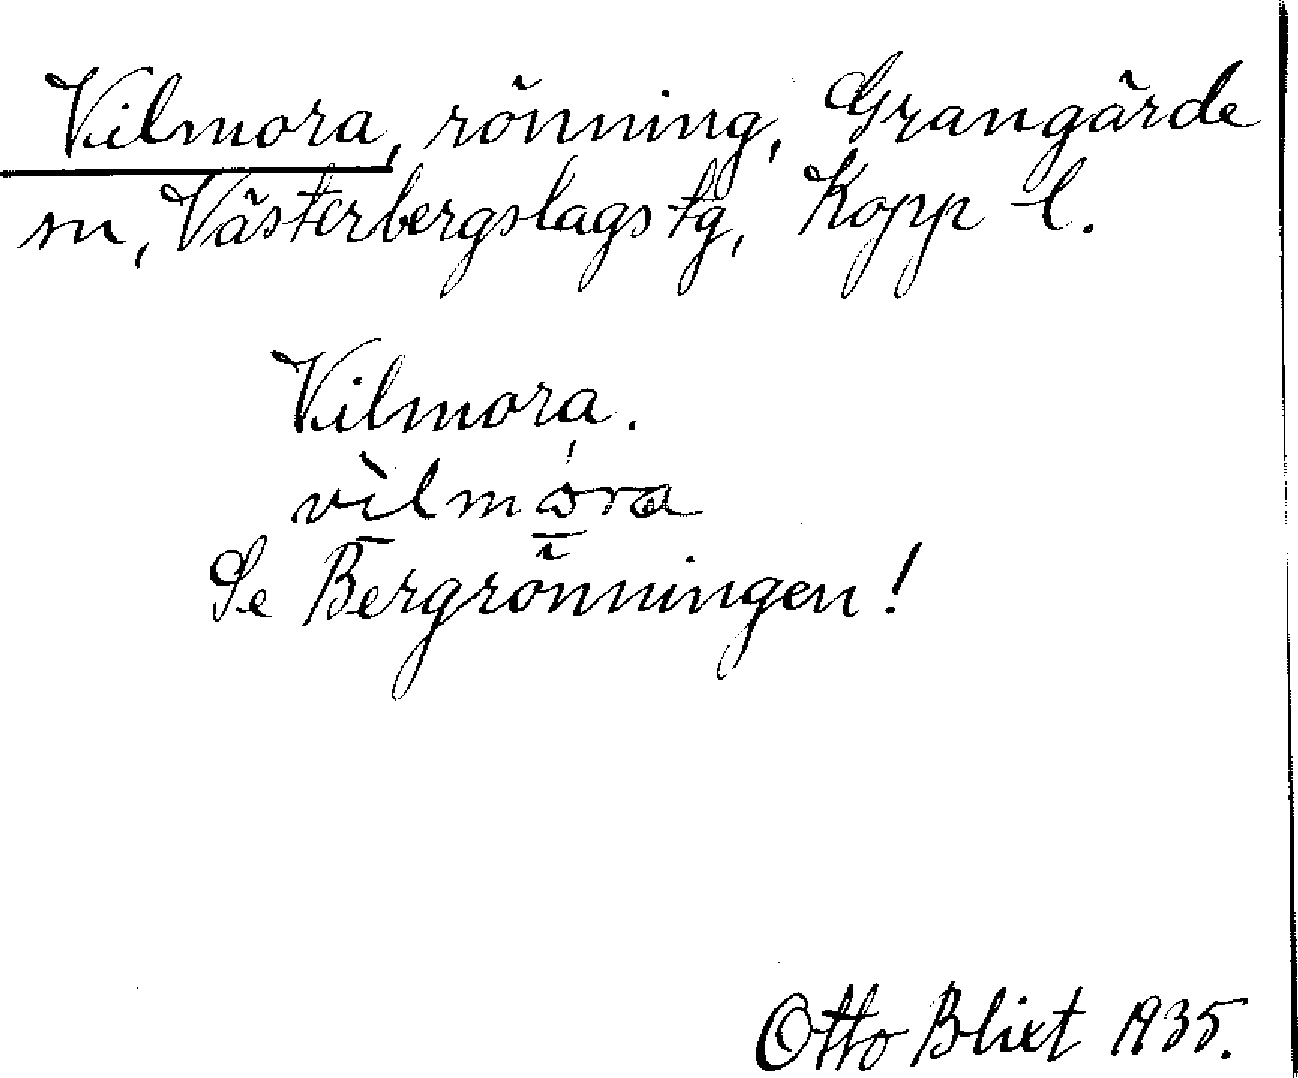 Vilmora, rönning, Grangärde
sn, Västerbergslags tg, Kopp l.
Vilmora.
vìlmɷ́ra
Se Bergrönningen!
Otto Blixt 1935.